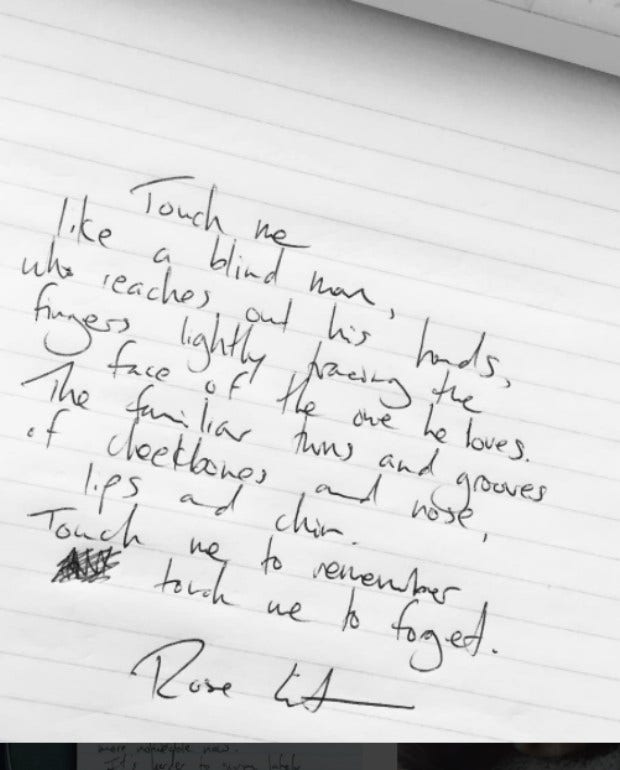 Touch me
like a blind man,
who reaches out his hands,
fingers lightly tracing the
face of the one he loves.
The familiar turns and grooves
of cheekbones and nose,
lips and chin.
Touch me to remember
touch me to forget.
Rose
more noticeable now.
It's harder to